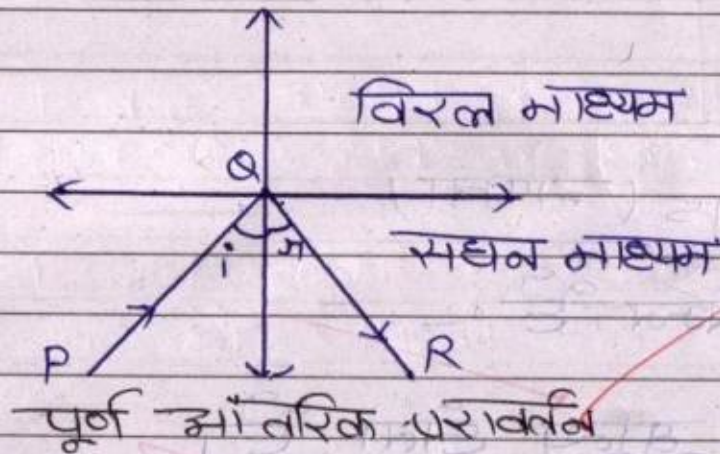 विरल माध्यम
Q
सघन माध्यम
i r
P R
पूर्ण आंतरिक परावर्तन